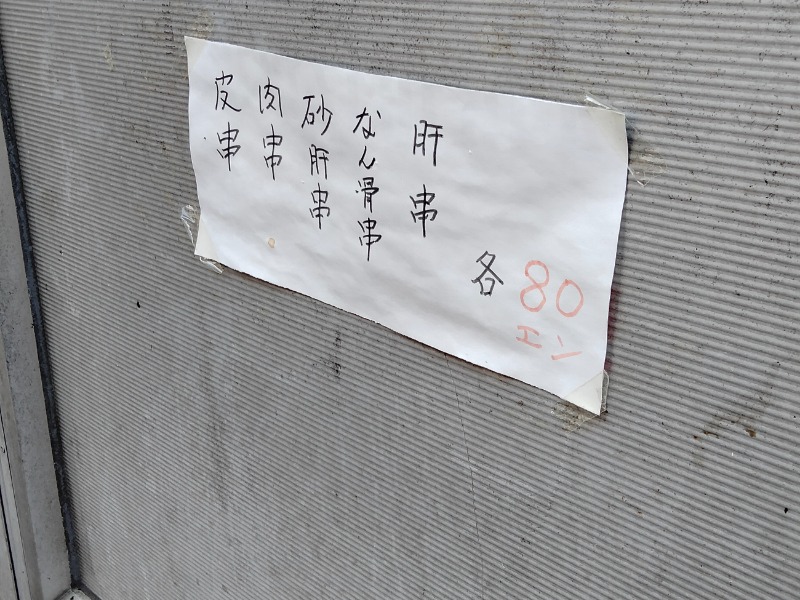 肝串
なん骨串
砂肝串
肉串
皮串
各80
エン